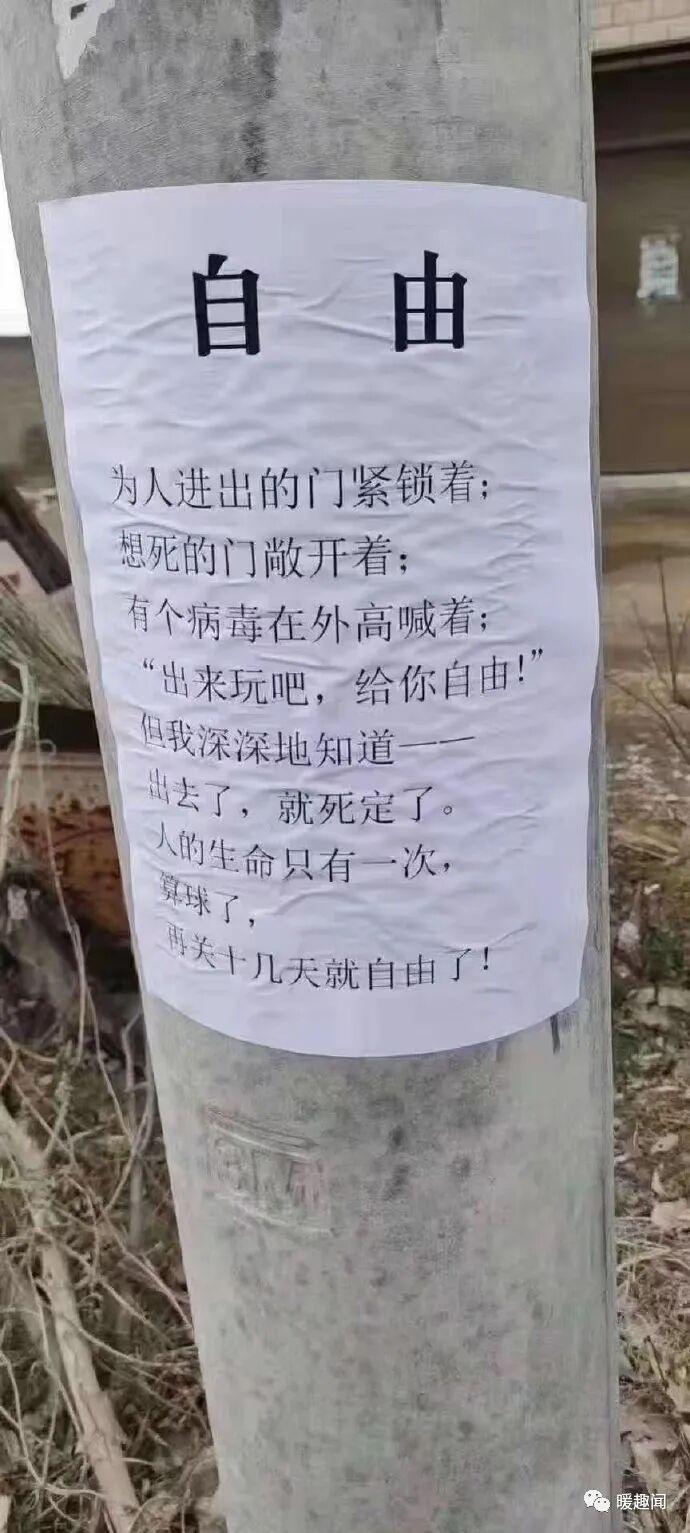 自由
为人进出的门紧锁着；
想死的门敞开着；
有个病毒在外高喊着；
“出来玩吧，给你自由！”
但我深深地知道——
出去了，就死定了。
人的生命只有一次，
算球了，
再关十几天就自由了！
暖趣闻